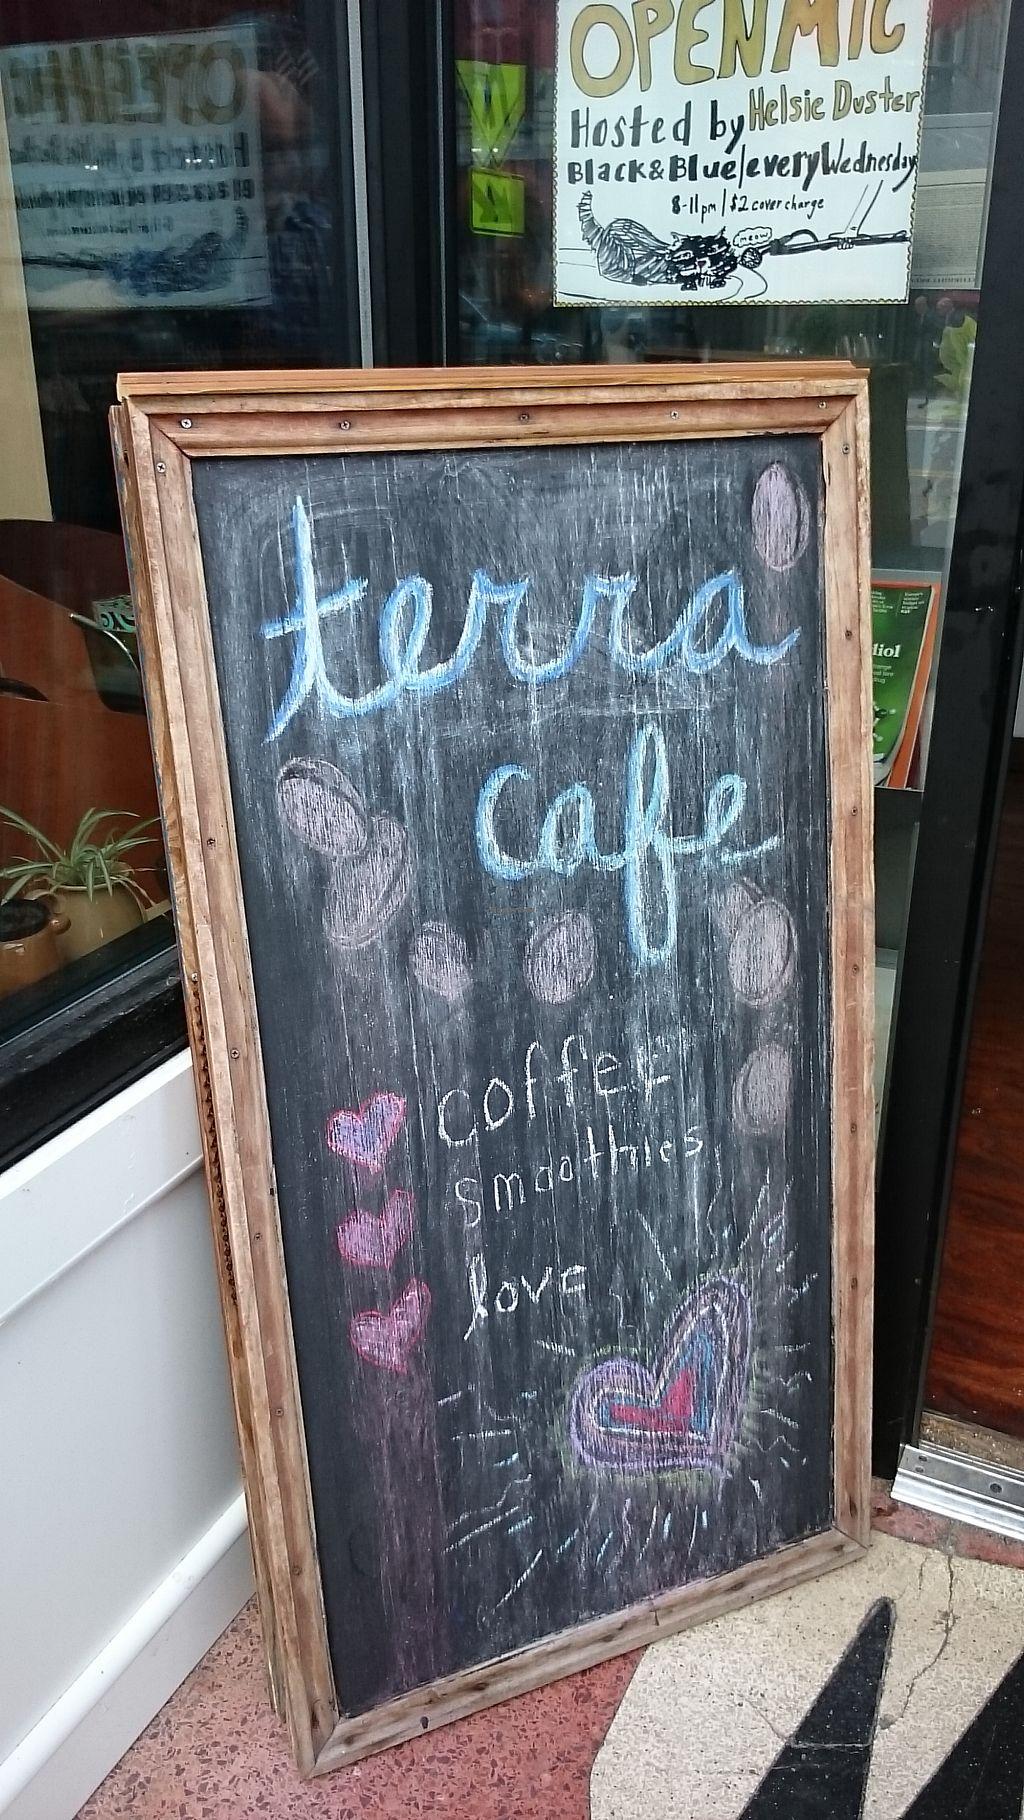 OPEN MIC
Hosted by Helsie Duster
Black & Blue/every Wednesday
8-11pm | $2 cover charge
meow
terra
cafe
coffee
smoothies
love